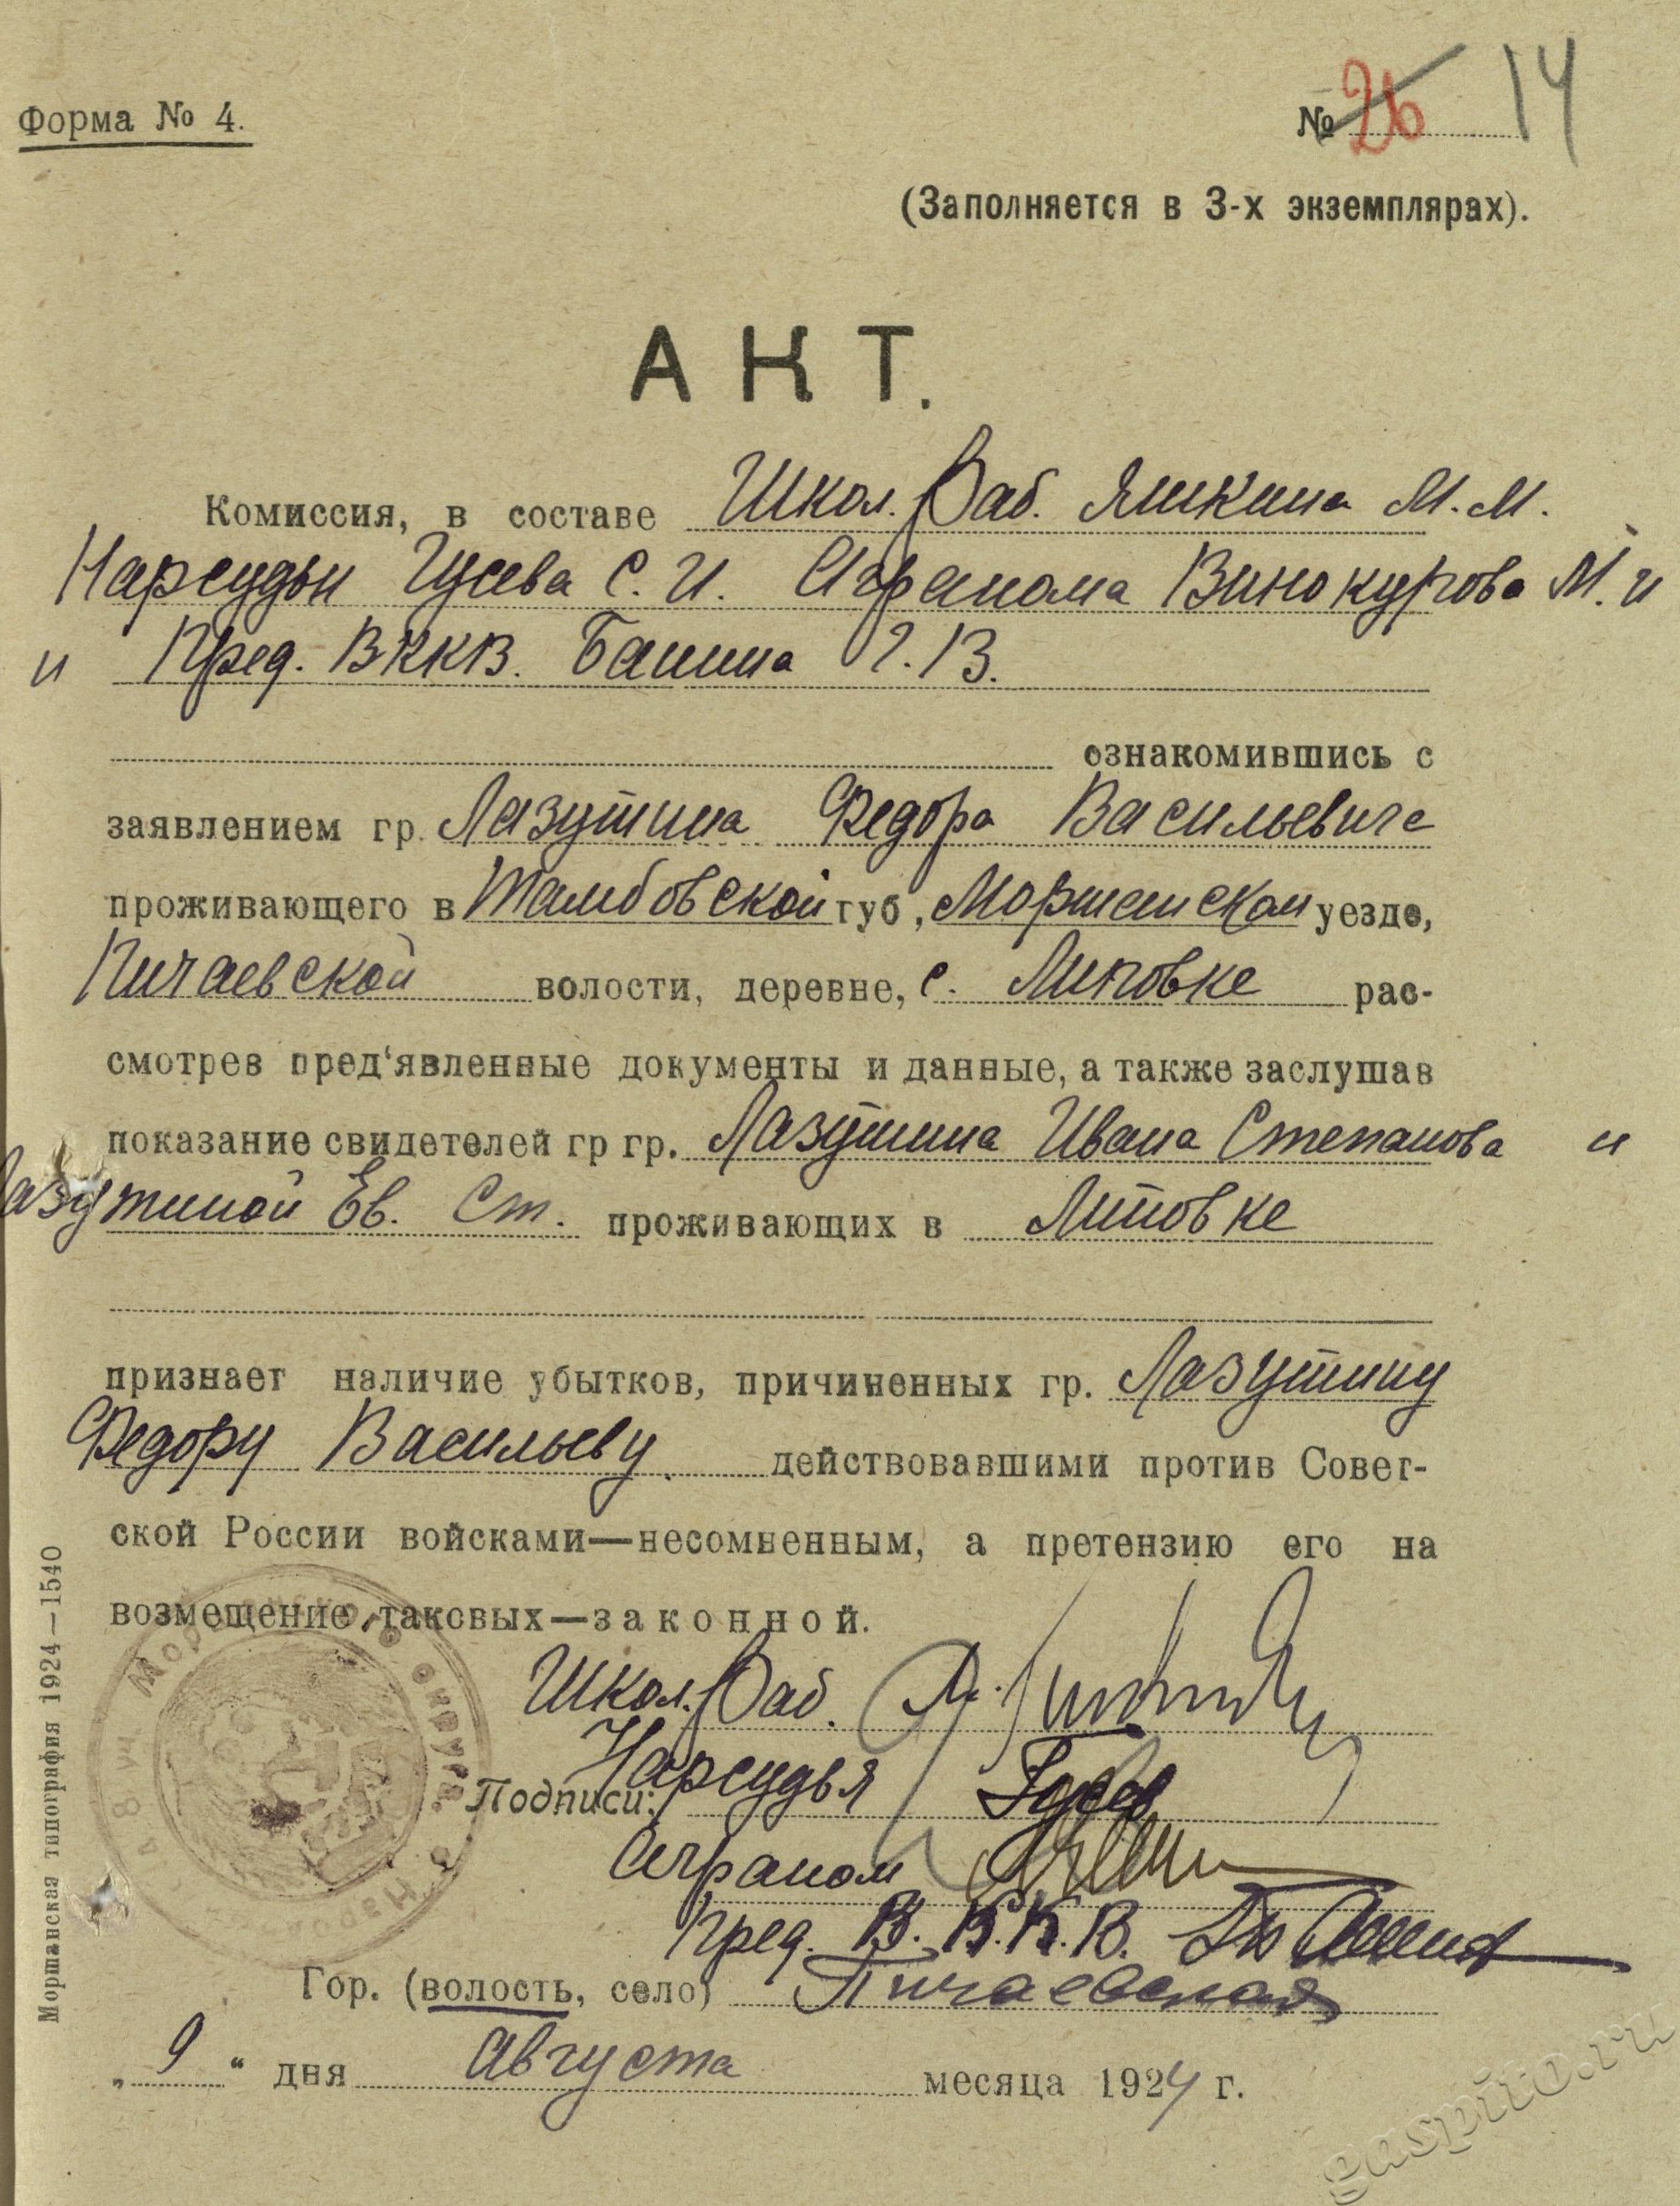 Форма № 4.
№ 26 14
(Заполняется в 3-х экземплярах).
АКТ.
Комиссия, в составе Школ. Раб. Яшкина М. М.
Нарсудьи Гусева С. И. Агранома Винокурова М. и
и Пред. ВККВ. Башина Г. В.
ознакомившись с
заявлением гр. Лазутина Федора Васильевича
проживающего в Тамбовской губ., Моршанском уезде,
Пичаевской волости, деревне, с. Липовке рас-
смотрев пред‘явленные документы и данные, а также заслушав
показание свидетелей гр гр. Лазутина Ивана Степанова и
Лазутиной Ев. Ст. проживающих в Липовке
признает наличие убытков, причиненных гр. Лазутину
Федору Васильеву. действовавшими против Совет-
ской России войсками—несомненным, а претензию его на
возмещение таковых—законной.
Школ. Раб.
Нарсудья Гусев
Подписи:
Аграном
Пред. В. К. К. В.
Гор. (волость, село) Пичаевская
„ 9 “ дня Августа месяца 1924 г.
Моршанская типография 1924—1540
gaspito.ru